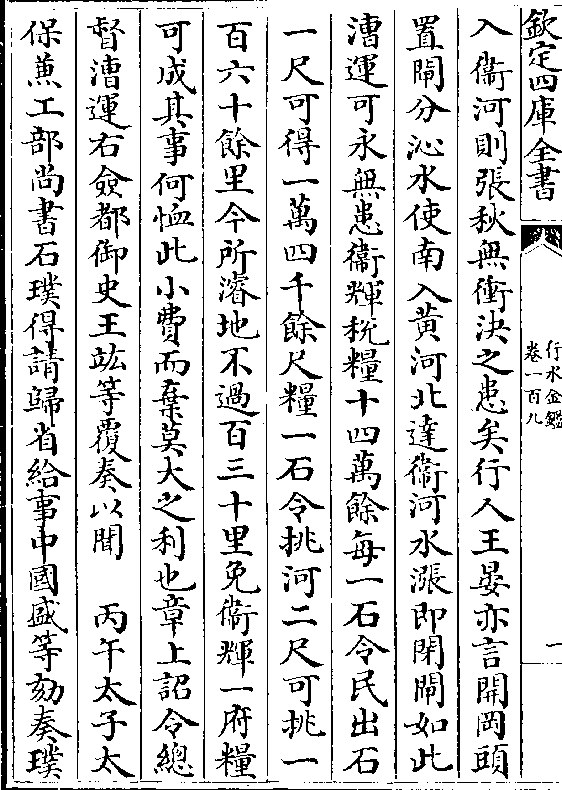 欽定四庫全書
行水金鑑
卷一百九
一
入衞河則張秋無衝決之患矣行人王晏亦言開岡頭
置閘分沁水使南入黄河北達衞河水漲即閉閘如此
漕運可永無患衞輝税糧十四萬餘每一石令民出石
一尺可得一萬四千餘尺糧一石令挑河二尺可挑一
百六十餘里今所濬地不過百三十里免衞輝一府糧
可成其事何恤此小費而棄莫大之利也章上詔令總
督漕運右僉都御史王竑等覆奏以聞　丙午太子太
保兼工部尚書石璞得請歸省給事中國盛等劾奏璞